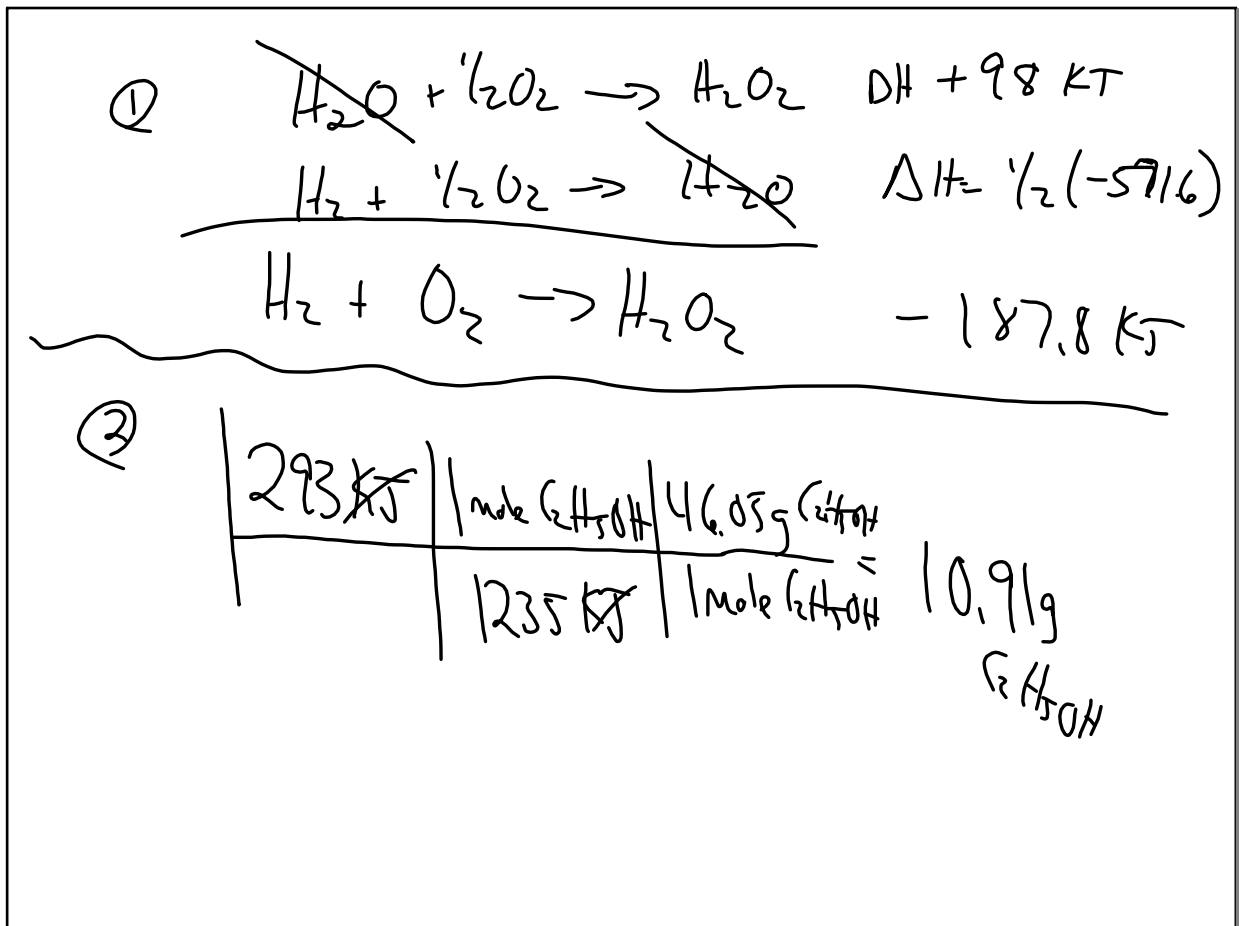 ① H₂O + ½O₂ → H₂O₂ DH + 98 KJ
H₂ + ½O₂ → H₂O ΔH = ½(-571.6)
H₂ + O₂ → H₂O₂ - 187.8 KJ
② 293 KJ | 1 mole C₂H₅OH | 46.05g C₂H₅OH
1235 KJ | 1 mole C₂H₅OH = 10.91g
C₂H₅OH